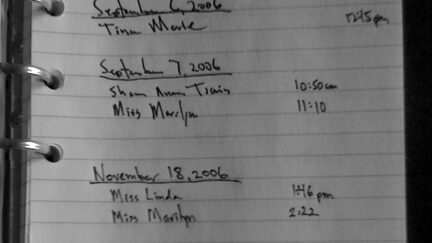 September 6, 2006
Tina Marle 12:45 pm
September 7, 2006
Shon Ann Travis 10:50am
Miss Marilyn 11:10
November 18, 2006
Miss Linda 1:46 pm
Miss Marilyn 2:22